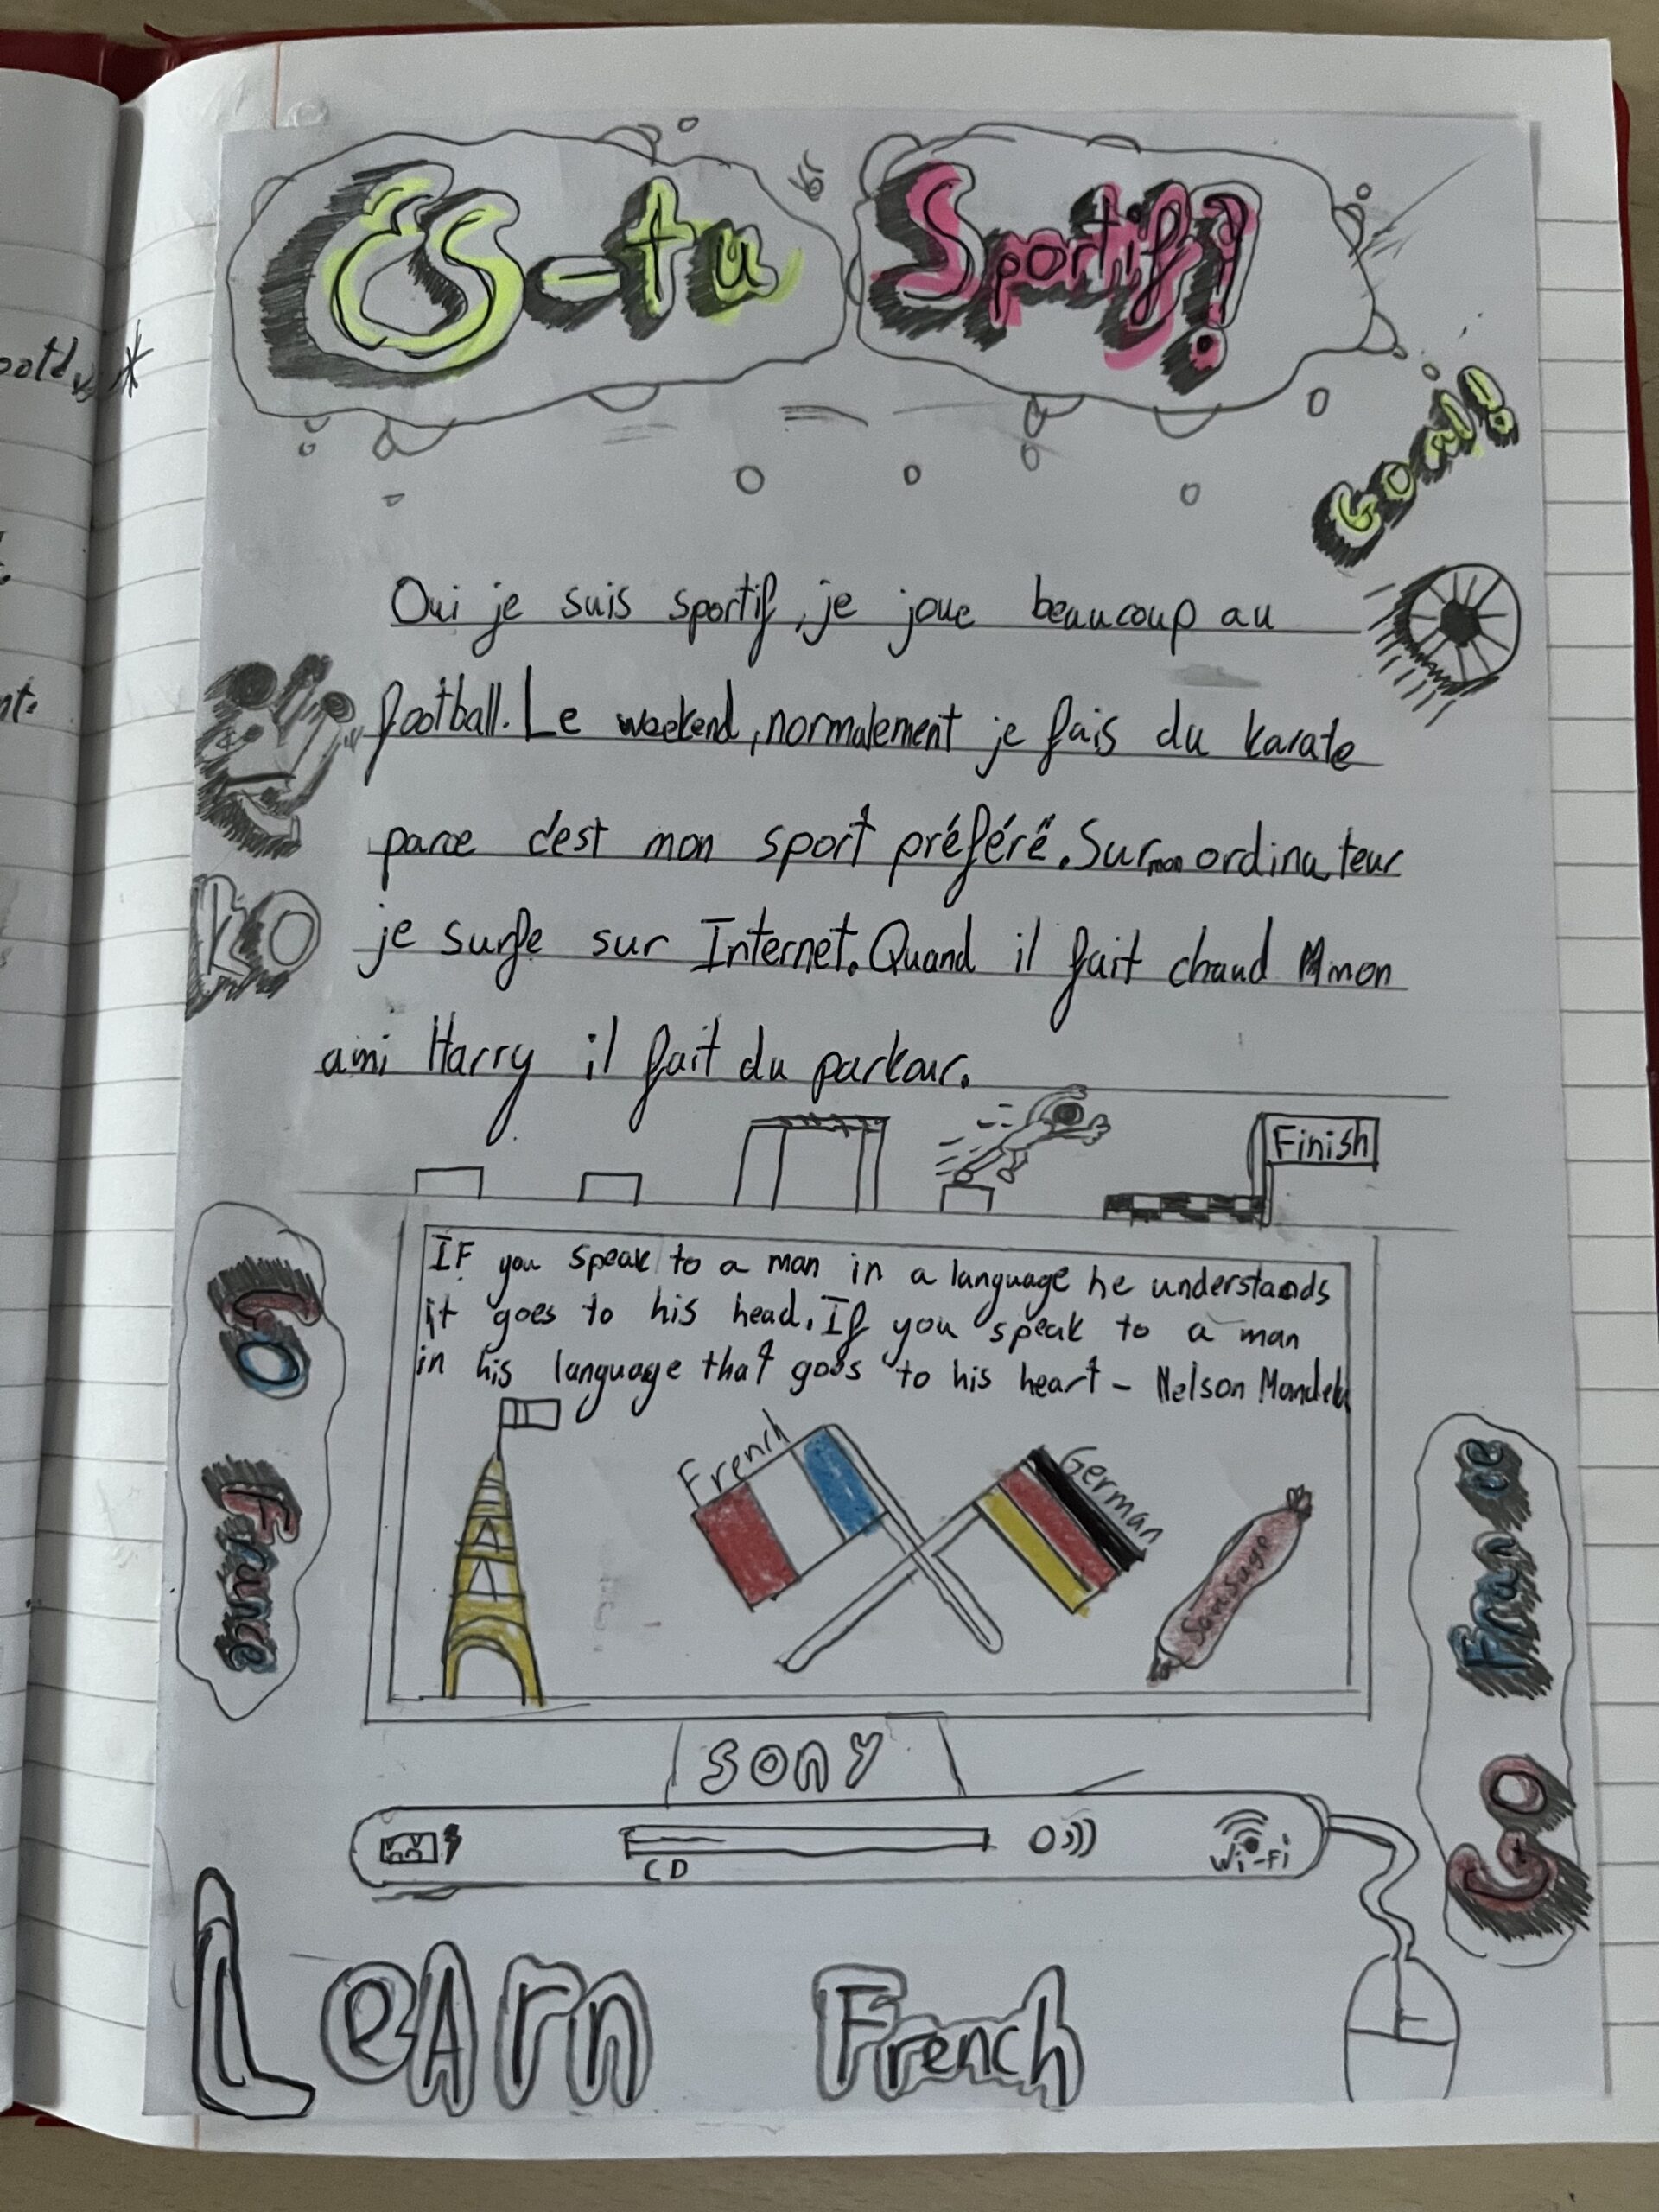 Es-tu Sportif?
Goal!
Oui je suis sportif, je joue beaucoup au
football. Le weekend, normalement je fais du karate
parce c'est mon sport préféré. Sur mon ordinateur
je surfe sur Internet. Quand il fait chaud mon
ami Harry il fait du parkour.
KO
Finish
If you speak to a man in a language he understands
it goes to his head. If you speak to a man
in his language that goes to his heart - Nelson Mandela
French
German
Sausage
Go France
Go France
SONY
CD
Wi-Fi
LeArn French